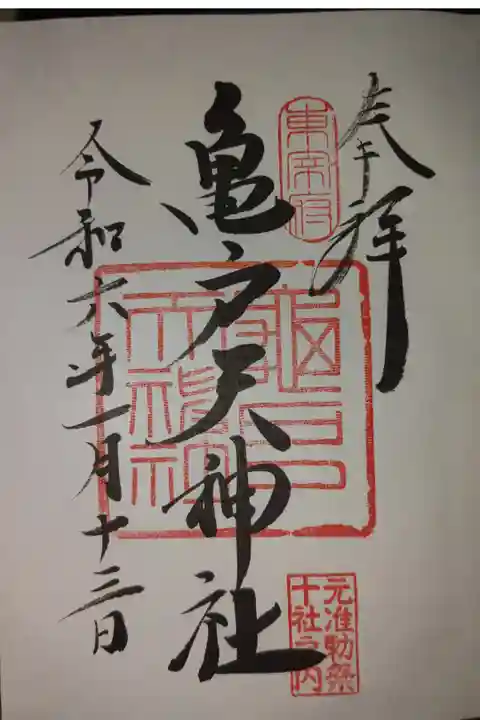 奉拝
東宰府
亀戸天神社
亀戸天神社
元准勅祭
十社之内
令和六年一月十三日